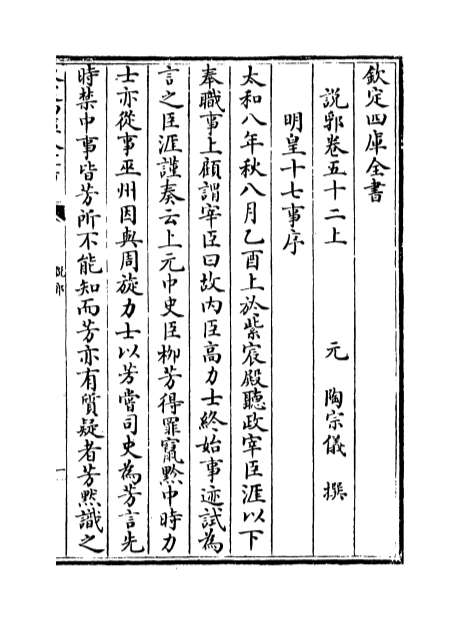 欽定四庫全書
說郛卷五十二上
元 陶宗儀 撰
明皇十七事序
太和八年秋八月乙酉上於紫宸殿聽政宰臣涯以下
奉職事上顧謂宰臣曰故内臣高力士終始事迹試為
言之臣涯謹奏云上元中史臣栁芳得罪竄黔中時力
士亦從事巫州因與周旋力士以芳嘗司史為芳言先
時禁中事皆芳所不能知而芳亦有質疑者芳黙識之
說郛
一